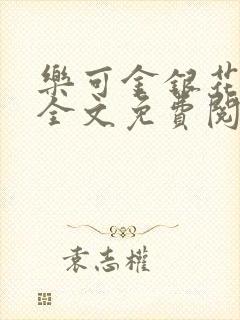 樂可金銀花
全文免費閱
袁志權